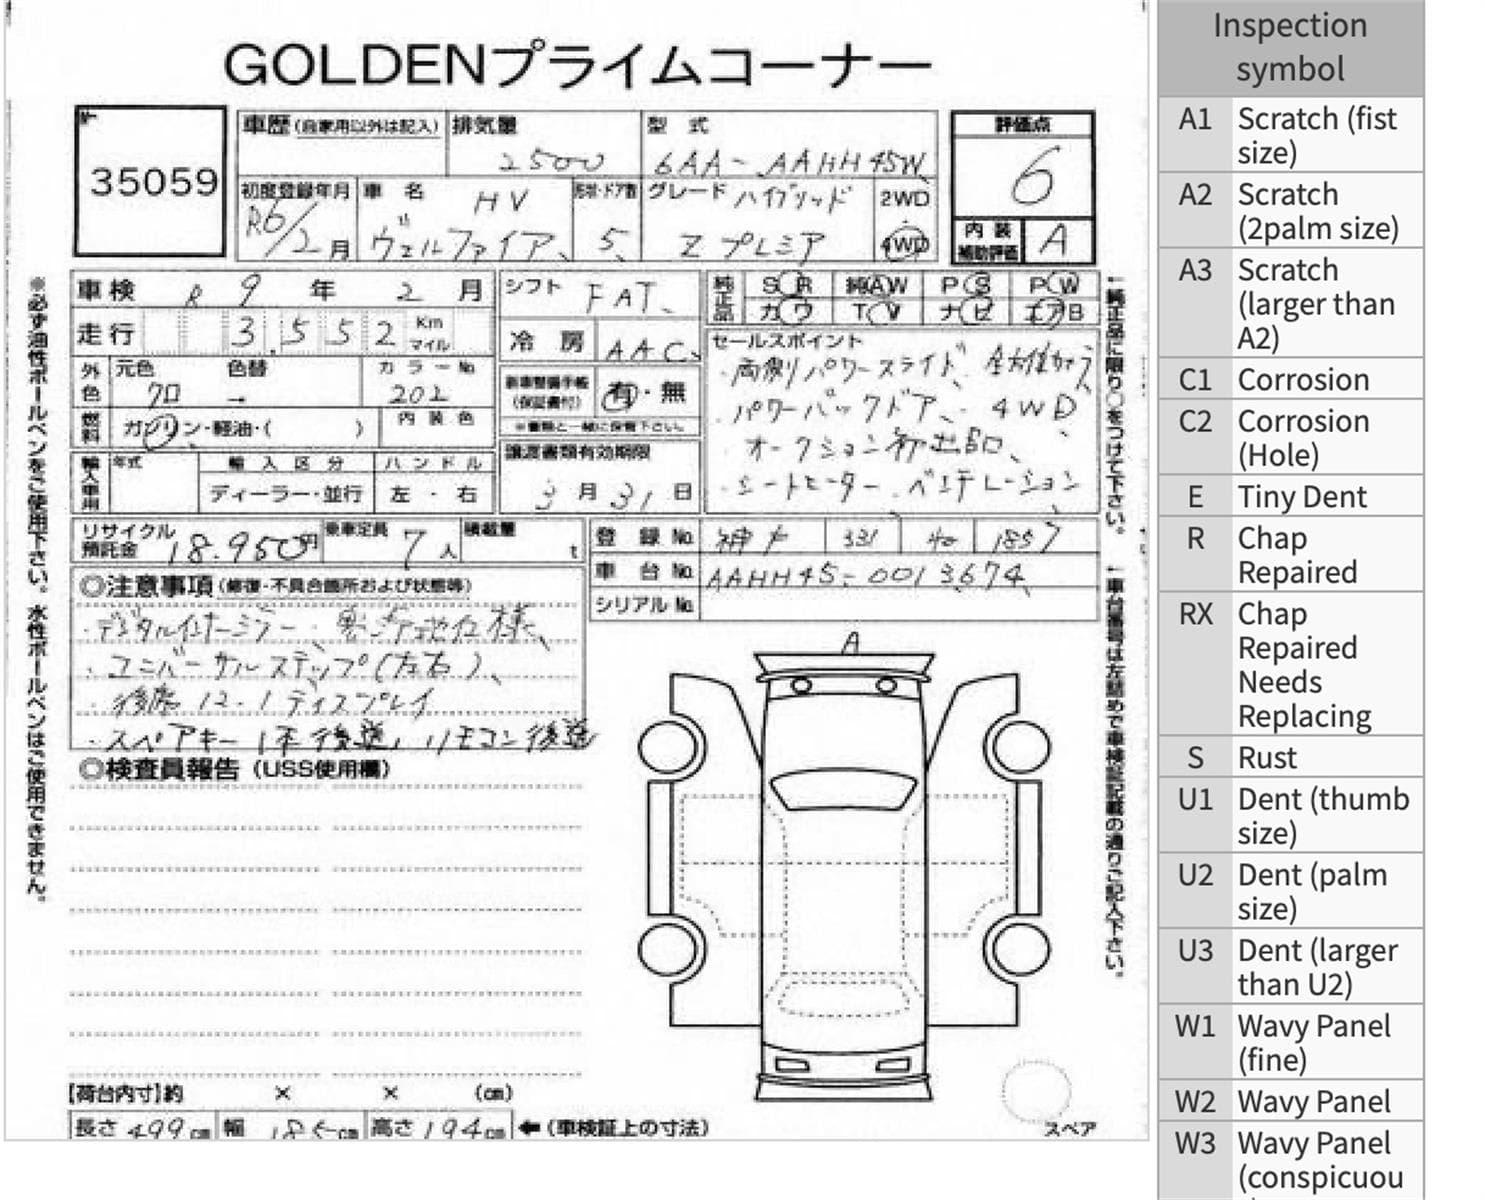 GOLDENプライムコーナー
35059
車歴(自家用以外は記入)
排気量
2500
型 式
6AA-AAHH45W
評価点
6
内装補助評価
A
初度登録年月
R6/2月
車 名
HV
ヴェルファイア
形状・ドア数
5
グレード
ハイブリッド
Z プレミア
2WD
4WD
車検 R 9 年 2 月
走行 3,552 Km マイル
外色
元色
クロ
色替
→
カラーNo
202
燃料
ガソリン・軽油・( )
内装色
輸入車用
年式
輸入区分
ディーラー・並行
ハンドル
左・右
シフト
FAT
冷房
AAC
新車整備手帳
(保証書付)
有・無
※書類と一緒に保管下さい。
譲渡書類有効期限
3月31日
純正品
SR
純AW
PS
PW
カワ
TV
ナビ
エアB
セールスポイント
・両側パワースライド
・パワーバックドア、4WD
・オークション初出品
・シートヒーター、ベンチレーション
リサイクル預託金
18,950円
乗車定員
7人
積載量
t
登録No. 神戸 331 1857
車台No. AAHH45-0013674
シリアルNo.
◎注意事項(修復・不具合箇所および状態等)
・デジタルインナーミラー・寒冷地仕様、
・ユニバーサルステップ(左右)、
・後席12.1ディスプレイ
・スペアキー1本後送、リモコン後送
◎検査員報告(USS使用欄)
A
【荷台内寸】約 × × (cm)
長さ 499cm
幅 185cm
高さ 194cm
←(車検証上の寸法)
スペア
※必ず油性ボールペンをご使用下さい。水性ボールペンはご使用できません。
←純正品に限り○をつけて下さい。
←車台番号は左詰めで車検証記載の通りご記入下さい。
Inspection
symbol
A1 Scratch (fist
size)
A2 Scratch
(2palm size)
A3 Scratch
(larger than
A2)
C1 Corrosion
C2 Corrosion
(Hole)
E Tiny Dent
R Chap
Repaired
RX Chap
Repaired
Needs
Replacing
S Rust
U1 Dent (thumb
size)
U2 Dent (palm
size)
U3 Dent (larger
than U2)
W1 Wavy Panel
(fine)
W2 Wavy Panel
W3 Wavy Panel
(conspicuou